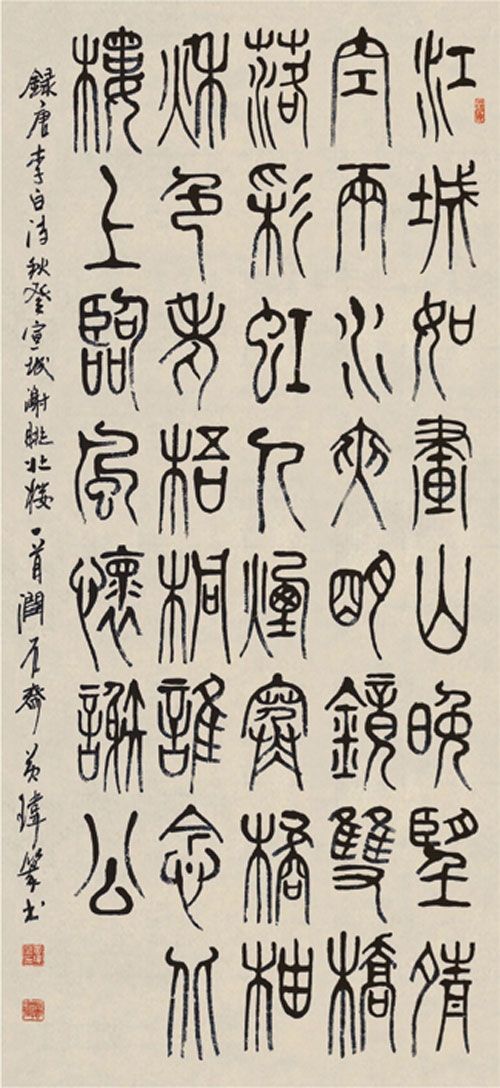 江城如畫山晚望晴
空兩水夾明鏡雙橋
落彩虹人煙寒橘柚
秌色老梧桐誰念北
樓上臨風懷謝公
錄唐李白詩秋登宣城謝朓北樓一首石齋瑋篆书